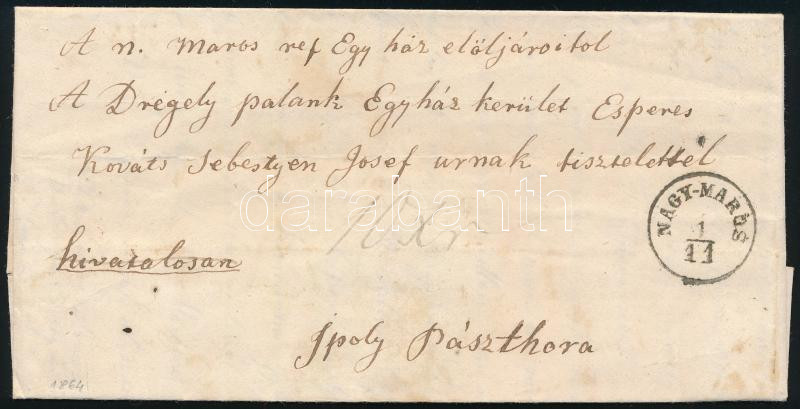 A n. Maros ref Egy ház elöljároitol
A Drégely palank Egyház kerület Esperes
Kováts Sebestyen Josef urnak tisztelettel
darabanth
10 xr
NAGY-MAROS
1
11
hivatalosan
Ipoly Pászthora
1864